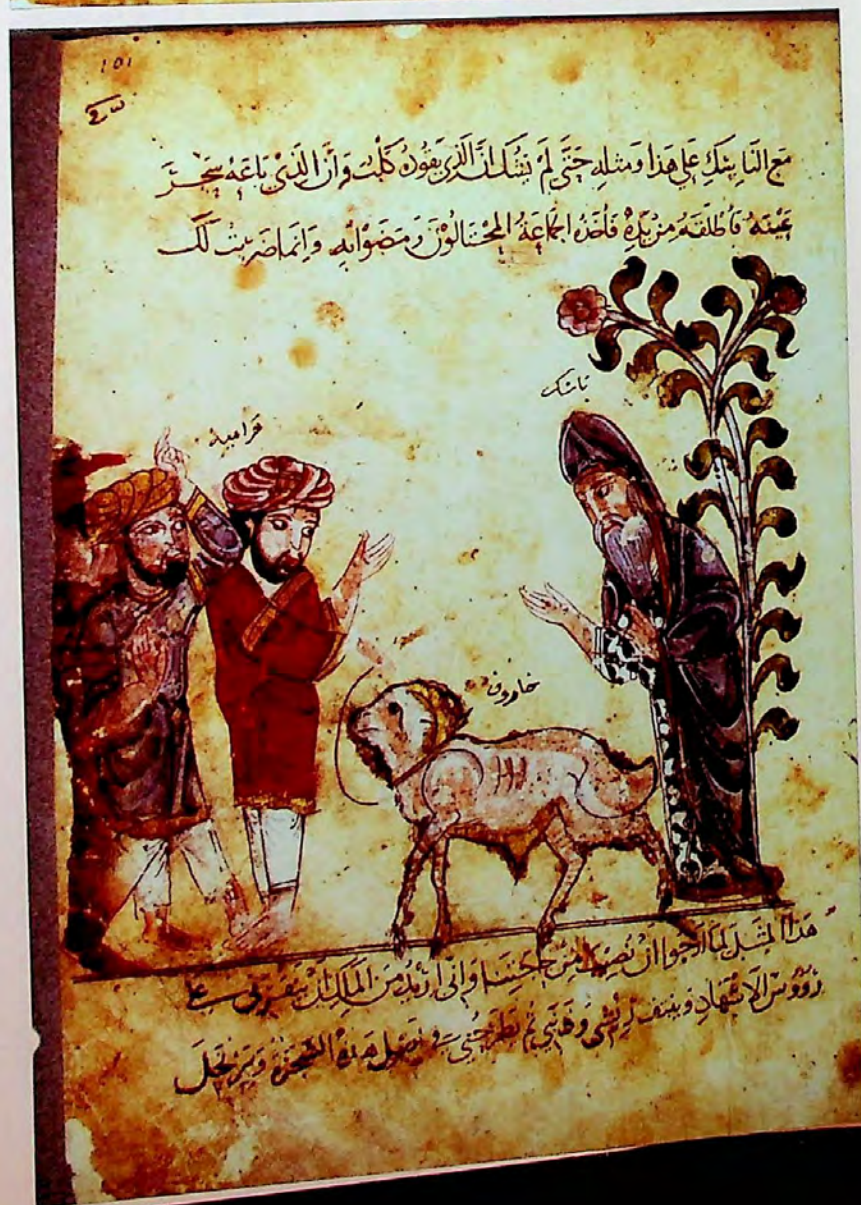 101
مع الناسك على هذا ومثله حتى لم يشك ان الذي يقوده كلب وان الذي باعه سحر
عينه فاطلقه من يده فاخذه الجماعة المحتالون ومضوا به وانما ضربت لك
ناسك
حرامية
خاروف
هذا المثل لما ارجوا ان نصيب من حاجتنا واني اريد من الملك ان ينقرني على
رؤوس الاشهاد وينتف ريشي وذنبي ثم يطرحني في اصل هذه الشجرة ويرتحل